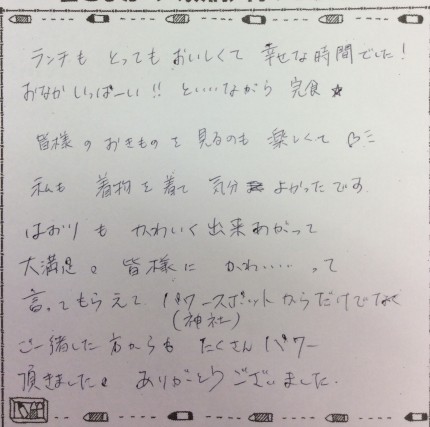 ランチも とっても おいしくて 幸せな時間でした！
おなかいっぱーい!! といいながら 完食 ★
皆様のおきものを見るのも 楽しくて
私も 着物を着て 気分 よかったです
はおりも かわいく出来あがって
大満足。 皆様に かわい……って
言ってもらえて パワースポットからだけでなく
(神社)
ご一緒した方からも たくさん パワー
頂きました。 ありがとうございました.